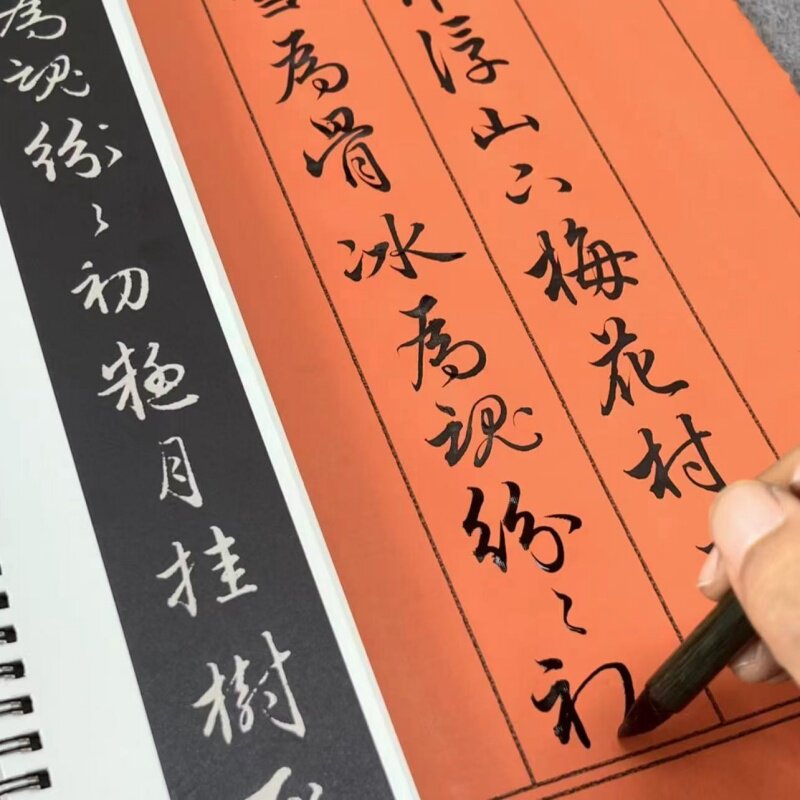 浮山下梅花村
為骨冰為魂紛々初
為魂紛々初疑月挂樹